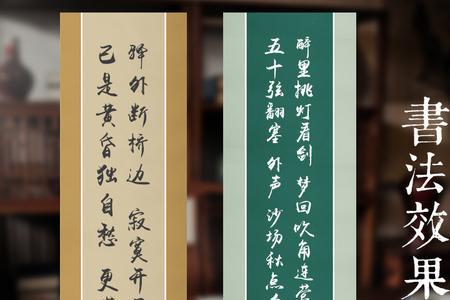 書法效果
醉里挑灯看剑 梦回吹角连营
五十弦翻塞外声 沙场秋点
驿外断桥边 寂寞开
已是黄昏独自愁 更